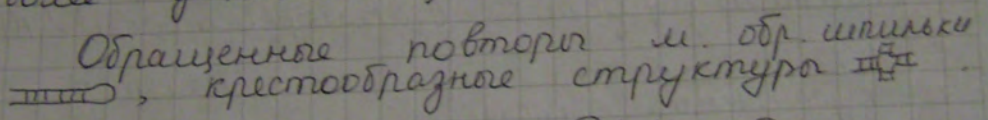 Обращенные повторы м. обр. шпильки
, крестообразные структуры .